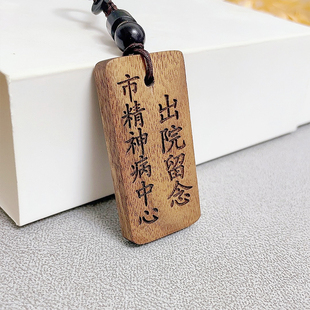 出院留念
市精神病中心